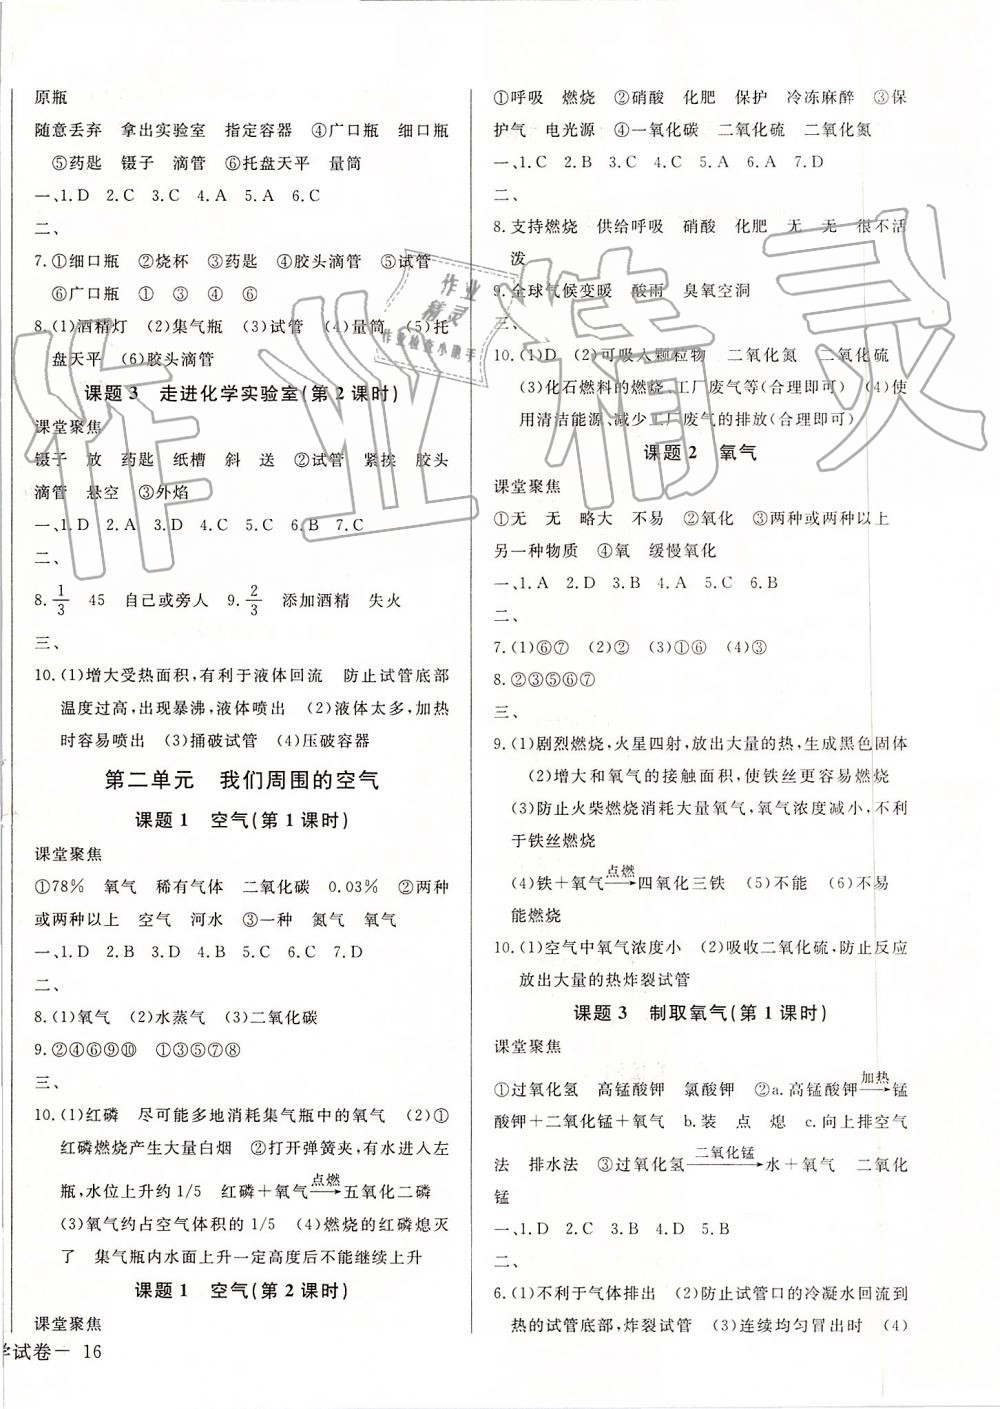 原瓶
随意丢弃 拿出实验室 指定容器 ④广口瓶 细口瓶
⑤药匙 镊子 滴管 ⑥托盘天平 量筒
一、1.D 2.C 3.C 4.A 5.A 6.C
二、
7.①细口瓶 ②烧杯 ③药匙 ④胶头滴管 ⑤试管
⑥广口瓶 ① ③ ④ ②
8.(1)酒精灯 (2)集气瓶 (3)试管 (4)量筒 (5)托
盘天平 (6)胶头滴管
课题3 走进化学实验室(第2课时)
课堂聚焦
镊子 放 药匙 纸槽 斜 送 ②试管 紧挨 胶头
滴管 悬空 ③外焰
一、1.D 2.A 3.D 4.C 5.C 6.B 7.C
二、
8.1/3 45 自己或旁人 9.2/3 添加酒精 失火
三、
10.(1)增大受热面积,有利于液体回流 防止试管底部
温度过高,出现暴沸,液体喷出 (2)液体太多,加热
时容易喷出 (3)捅破试管 (4)压破容器
第二单元 我们周围的空气
课题1 空气(第1课时)
课堂聚焦
①78% 氧气 稀有气体 二氧化碳 0.03% ②两种
或两种以上 空气 河水 ③一种 氮气 氧气
一、1.D 2.B 3.D 4.C 5.B 6.C 7.D
二、
8.(1)氧气 (2)水蒸气 (3)二氧化碳
9.②④⑥⑨⑩ ①③⑤⑦⑧
三、
10.(1)红磷 尽可能多地消耗集气瓶中的氧气 (2)①
红磷燃烧产生大量白烟 ②打开弹簧夹,有水进入左
瓶,水位上升约1/5 红磷＋氧气 点燃→ 五氧化二磷
(3)氧气约占空气体积的1/5 (4)燃烧的红磷熄灭
了 集气瓶内水面上升一定高度后不能继续上升
课题1 空气(第2课时)
课堂聚焦
学试卷— 16
①呼吸 燃烧 ②硝酸 化肥 保护 冷冻麻醉 ③保
护气 电光源 ④一氧化碳 二氧化硫 二氧化氮
一、1.C 2.B 3.C 4.C 5.A 6.A 7.D
二、
8.支持燃烧 供给呼吸 硝酸 化肥 无 无 很不活
泼
9.全球气候变暖 酸雨 臭氧空洞
三、
10.(1)D (2)可吸入颗粒物 二氧化氮 二氧化硫
(3)化石燃料的燃烧、工厂废气等(合理即可) (4)使
用清洁能源、减少工厂废气的排放(合理即可)
课题2 氧气
课堂聚焦
①无 无 略大 不易 ②氧化 ③两种或两种以上
另一种物质 ④氧 缓慢氧化
一、1.A 2.D 3.B 4.D 5.C 6.B
二、
7.(1)⑥⑦ (2)② (3)①⑥ (4)③
8.②③⑤⑥⑦
三、
9.(1)剧烈燃烧,火星四射,放出大量的热,生成黑色固体
(2)增大和氧气的接触面积,使铁丝更容易燃烧
(3)防止火柴燃烧消耗大量氧气,氧气浓度减小,不利
于铁丝燃烧
(4)铁＋氧气 点燃→ 四氧化三铁 (5)不能 (6)不易
能燃烧
10.(1)空气中氧气浓度小 (2)吸收二氧化硫,防止反应
放出大量的热炸裂试管
课题3 制取氧气(第1课时)
课堂聚焦
①过氧化氢 高锰酸钾 氯酸钾 ②a.高锰酸钾 加热→ 锰
酸钾＋二氧化锰＋氧气 b.装 点 熄 c.向上排空气
法 排水法 ③过氧化氢 二氧化锰→ 水＋氧气 二氧化
锰
一、1.D 2.C 3.A 4.D 5.B
二、
6.(1)不利于气体排出 (2)防止试管口的冷凝水回流到
热的试管底部,炸裂试管 (3)连续均匀冒出时 (4)
作业精灵
作业
精灵
作业检查小助手